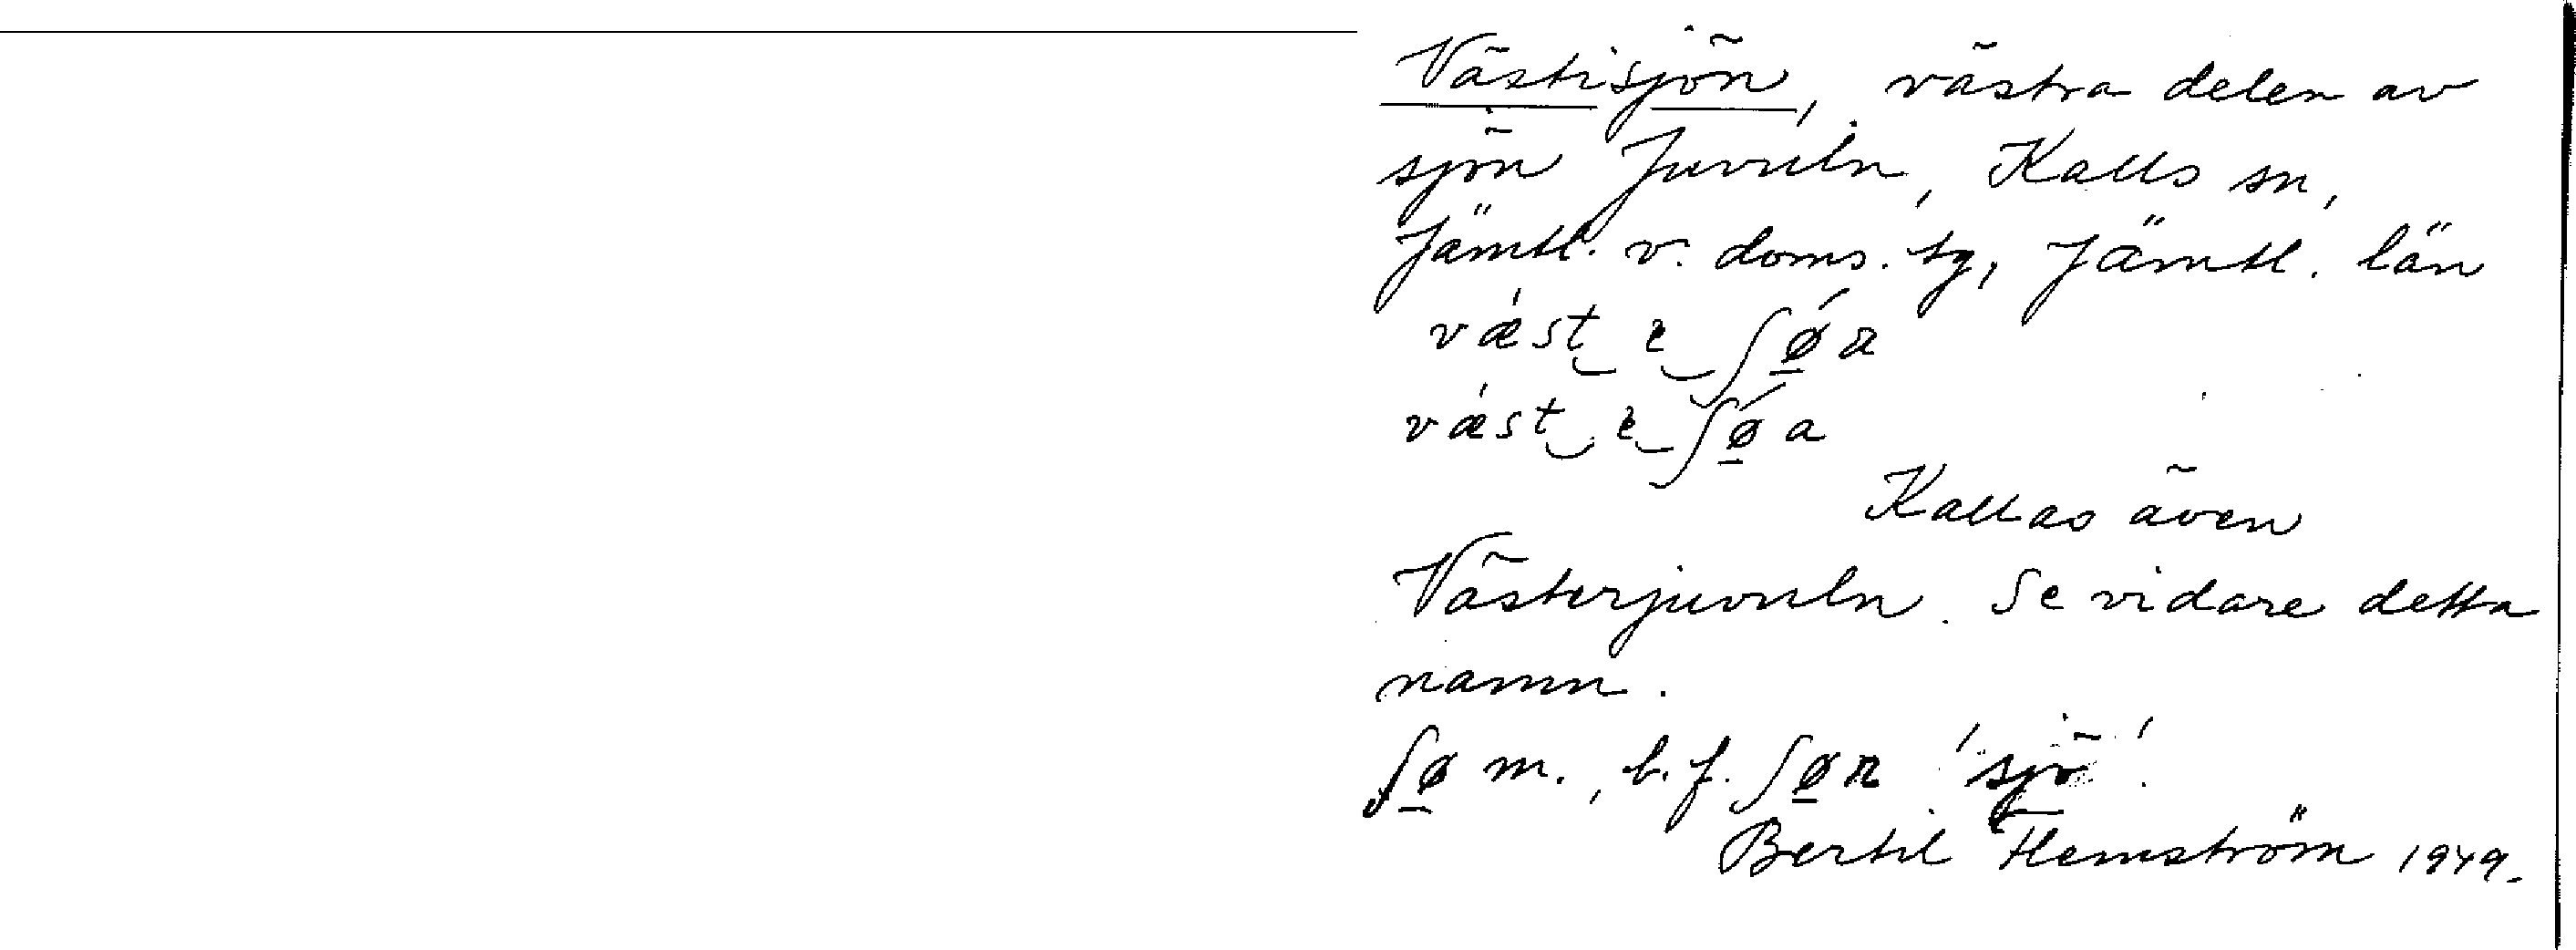 Västisjön, västra delen av
sjön Juvuln, Kalls sn,
Jämtl. v. doms. tg, Jämtl. län
vǽst‿e‿ʃǿ̱n
vǽst‿e‿ʃǿ̱a
Kallas även
Västerjuvuln. Se vidare detta
namn.
ʃø̱ m., b.f. ʃø̱n 'sjö'.
Bertil Hemström 1949.